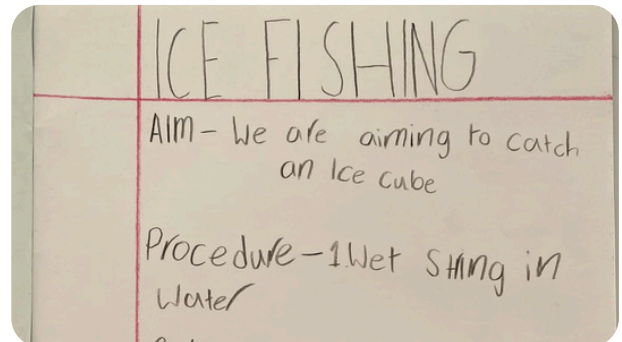 ICE FISHING
AIM - We are aiming to catch
an Ice cube
Procedure - 1. Wet String in
Water